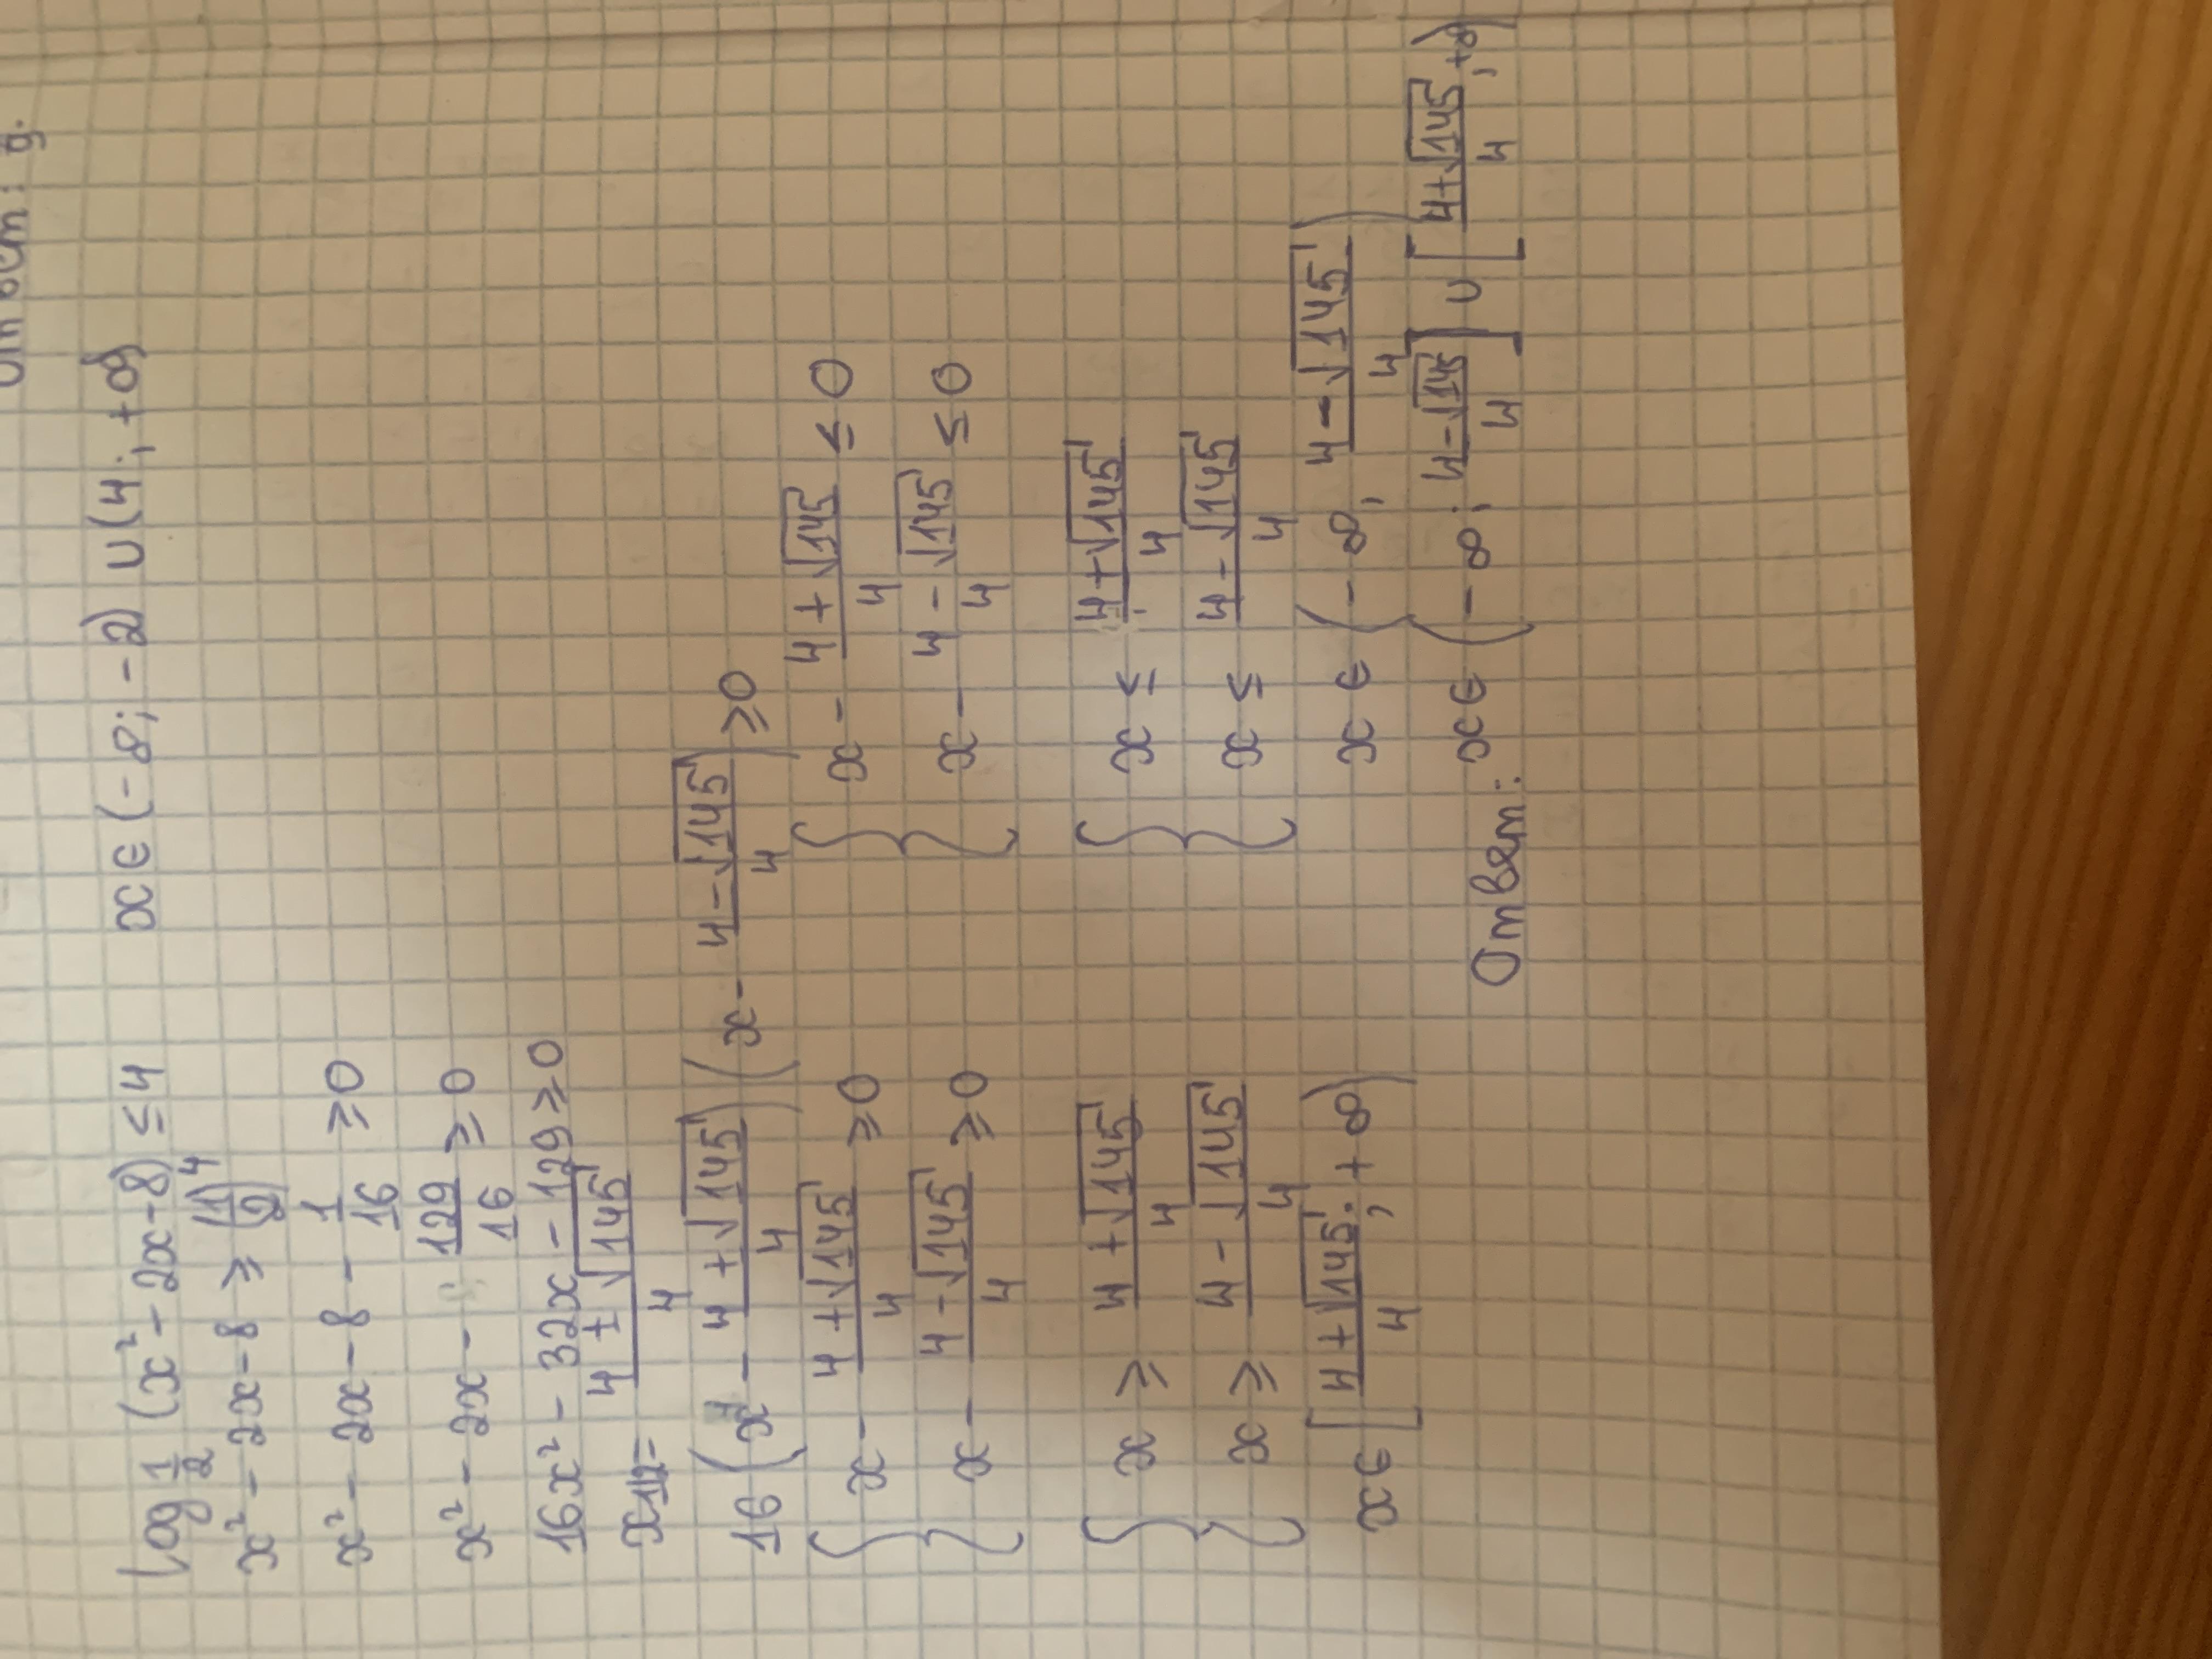 Ответ: g.
log 1/2 (x² - 2x - 8) ≤ 4 x ∈ (-∞; -2) ∪ (4; +∞)
x² - 2x - 8 ≥ (1/2)⁴
x² - 2x - 8 - 1/16 ≥ 0
x² - 2x - 129/16 ≥ 0
16x² - 32x - 129 ≥ 0
x₁,₂ = (4 ± √145)/4
16 (x - (4 + √145)/4) (x - (4 - √145)/4) ≥ 0
{ x - (4 + √145)/4 ≥ 0 { x - (4 + √145)/4 ≤ 0
x - (4 - √145)/4 ≥ 0 x - (4 - √145)/4 ≤ 0
{ x ≥ (4 + √145)/4 { x ≤ (4 + √145)/4
x ≥ (4 - √145)/4 x ≤ (4 - √145)/4
x ∈ [(4 + √145)/4; +∞) x ∈ (-∞; (4 - √145)/4)
Ответ: x ∈ (-∞; (4 - √145)/4] ∪ [(4 + √145)/4; +∞)